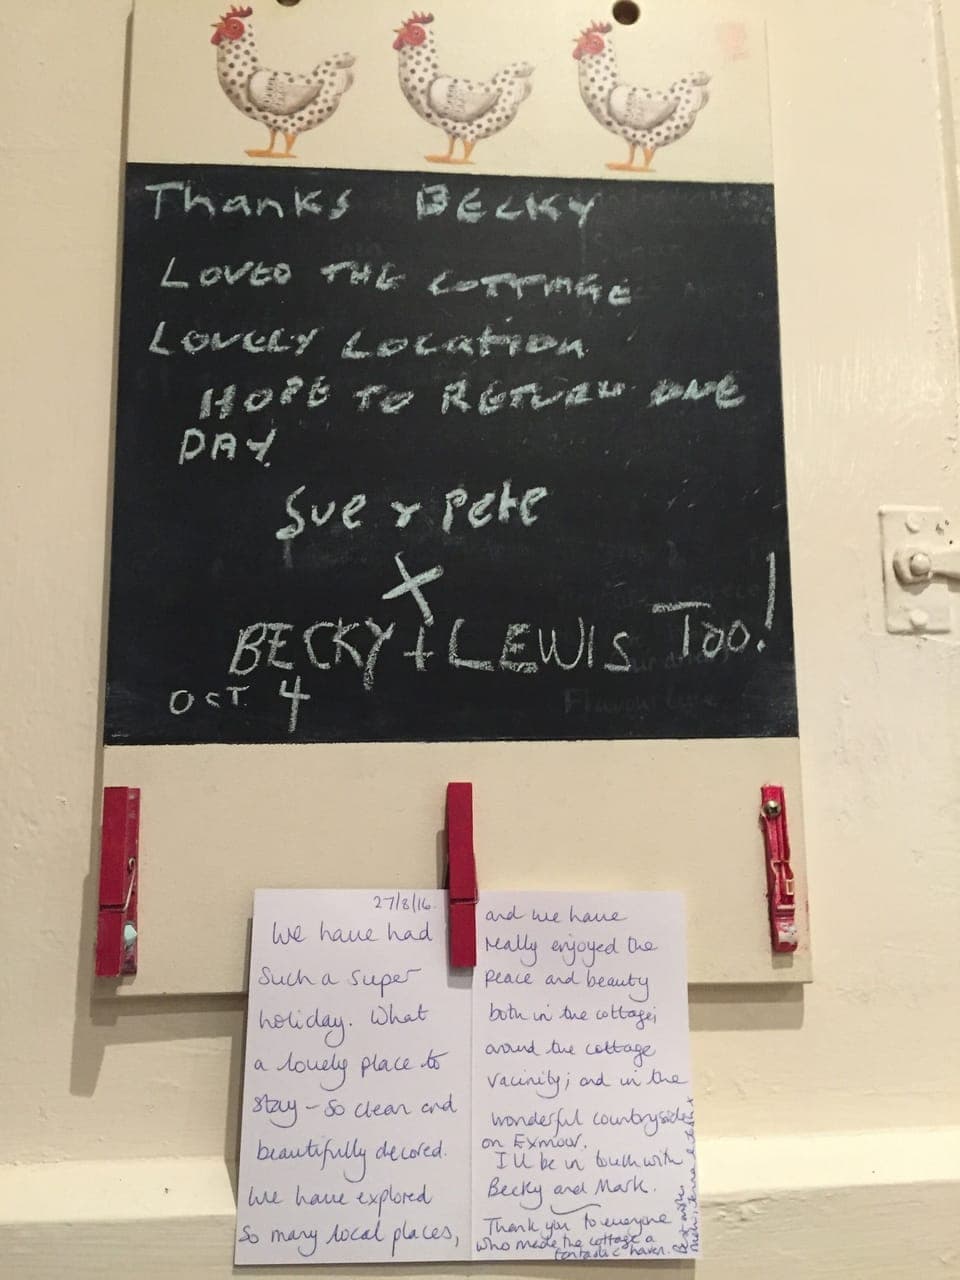 Thanks BECKY
LOVED THE COTTAGE
LOVELY LOCATION
HOPE TO RETURN ONE
DAY
Sue & Pete
X
BECKY + LEWIS TOO!
OCT 4
27/8/16.
We have had
Such a super
holiday. What
a lovely place to
stay - so clean and
beautifully decored.
We have explored
So many local places,
and we have
really enjoyed the
peace and beauty
both in the cottage;
around the cottage
vacinity; and in the
wonderful countryside
on Exmoor.
I'll be in touch with
Becky and Mark.
Thank you to everyone
who made the cottage a
fantastic haven.
Best wishes